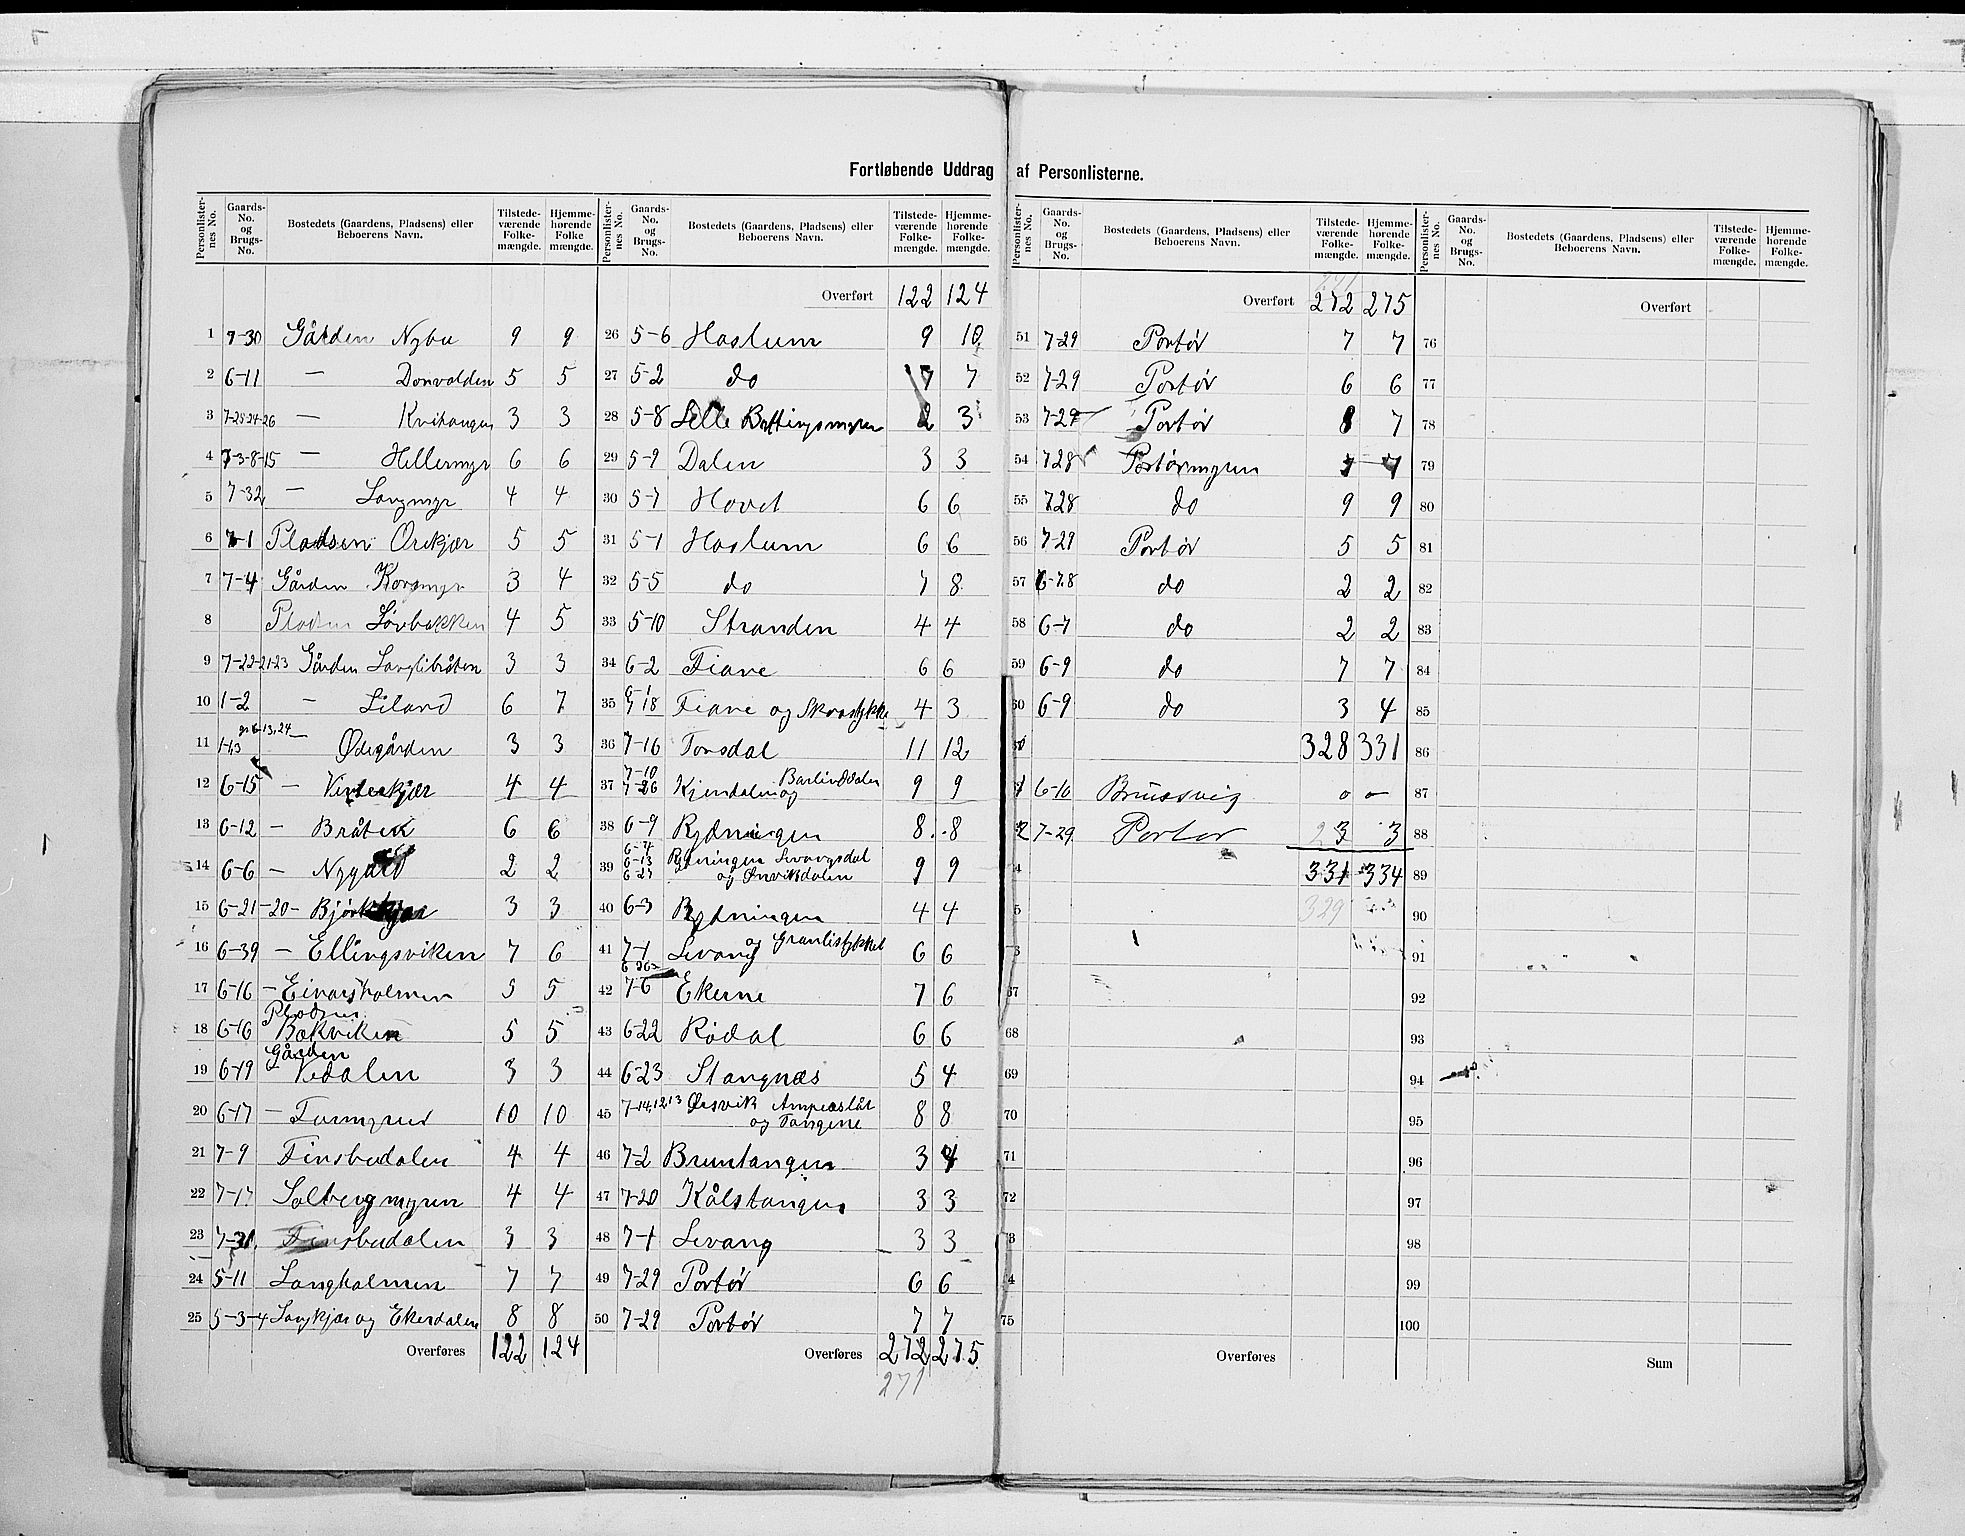 Fortløbende Uddrag af Personlisterne.
Personlister- nes No. Gaards- No. og Brugs- No. Bostedets (Gaardens, Pladsens) eller Beboerens Navn. Tilstede- værende Folke- mængde. Hjemme- hørende Folke mængde.
1 7-30 Gården Nybu 9 9
2 6-11 — Donvalden 5 5
3 7-25-24-26 — Kvihaugen 3 3
4 7-3-8-15 — Hellermyr 6 6
5 7-32 — Langmyr 4 4
6 7-1 Pladsen Orekjær 5 5
7 7-4 Gården Korsmyr 3 4
8 Pladsen Løvbakken 4 5
9 7-22-21-23 Gården Langlibråten 3 3
10 1-2 — Liland 6 7
11 1-1,3 — Ødegården 3 3
12 6-15 — Vinterkjær 4 4
13 6-12 — Bråten 6 6
14 6-6 — Nygård 2 2
15 6-21-20 — Bjørkekjær 3 3
16 6-39 — Ellingsviken 7 6
17 6-16 — Einarsholmen 5 5
18 6-16 Pladsen Bækviken 5 5
19 6-19 Gården Vedalen 3 3
20 6-17 — Furmyren 10 10
21 7-9 Finsbudalen 4 4
22 7-17 Solbergmyren 4 4
23 7-31 Finsbudalen 3 3
24 5-11 Langholmen 7 7
25 5-3-4 Langkjær og Ekerdalen 8 8
Overføres 122 124
Personlister- nes No. Gaards- No. og Brugs- No. Bostedets (Gaardens, Pladsens) eller Beboerens Navn. Tilstede- værende Folke- mængde. Hjemme- hørende Folke- mængde.
Overført 122 124
26 5-6 Haslum 9 10
27 5-2 do 7 7
28 5-8 Lille Buttingsmyren 2 3
29 5-9 Dalen 3 3
30 5-7 Hovet 6 6
31 5-1 Haslum 6 6
32 5-5 do 7 8
33 5-10 Stranden 4 4
34 6-2 Fiane 6 6
35 6-1 7-18 Fiane og Skrastykke 4 3
36 7-16 Torsdal 11 12
37 7-10 7-26 Kjendalen og Barlinddalen 9 9
38 6-9 Rydningen 8 8
39 6-4 6-13 6-27 Rydningen Levangsdal og Ørvikdalen 9 9
40 6-3 Rydningen 4 4
41 7-1 6-26 Levang og Granlistykket 6 6
42 7-6 Ekerne 7 6
43 6-22 Rødal 6 6
44 6-23 Stangnæs 5 4
45 7-14,12,13 Øresvik Amperslåt og Tangene 8 8
46 7-2 Bruntangen 3 4
47 7-20 Kålstangen 3 3
48 7-1 Levang 3 3
49 7-29 Portør 6 6
50 7-29 Portør 7 7
Overføres 272 275
271
Personlister- nes No. Gaards- No. og Brugs- No. Bostedets (Gaardens, Pladsens) eller Beboerens Navn. Tilstede- værende Folke- mængde. Hjemme- hørende Folke- mængde.
Overført 272 275
51 7-29 Portør 7 7
52 7-29 Portør 6 6
53 7-29 Portør 8 7
54 7-28 Portørmyren 7 7
55 7-28 do 9 9
56 7-29 Portør 5 5
57 6-7.8 do 2 2
58 6-7 do 2 2
59 6-9 do 7 7
60 6-9 do 3 4
328 331
6-10 Brussvig 0 0
2 7-29 Portør 3 3
331 334
329
68
69
70
71
72
75
Overføres
Personlister- nes No. Gaards- No. og Brugs- No. Bostedets (Gaardens, Pladsens) eller Beboerens Navn. Tilstede- værende Folke- mængde. Hjemme- hørende Folke- mængde.
Overført
76
77
78
79
80
81
82
83
84
85
86
87
88
89
90
91
92
93
94
95
96
97
98
99
100
Sum